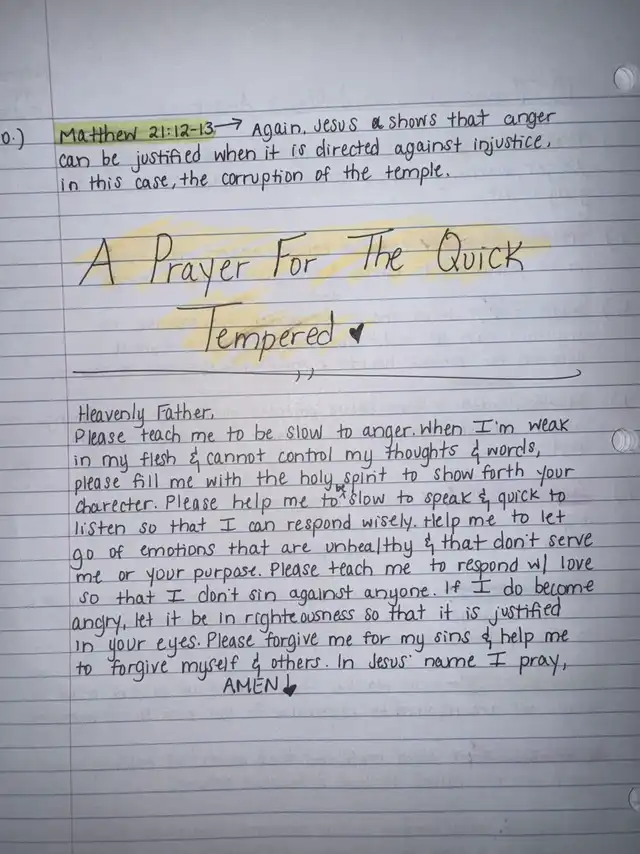 0.) Matthew 21:12-13 → Again, Jesus shows that anger
can be justified when it is directed against injustice,
in this case, the corruption of the temple.
A Prayer For The Quick
Tempered ♥
Heavenly Father,
Please teach me to be slow to anger. When I'm weak
in my flesh & cannot control my thoughts & words,
please fill me with the holy spirit to show forth your
charecter. Please help me to be slow to speak & quick to
listen so that I can respond wisely. Help me to let
go of emotions that are unhealthy & that don't serve
me or your purpose. Please teach me to respond w/ love
so that I don't sin against anyone. If I do become
angry, let it be in righteousness so that it is justified
in your eyes. Please forgive me for my sins & help me
to forgive myself & others. In Jesus' name I pray,
AMEN ♥